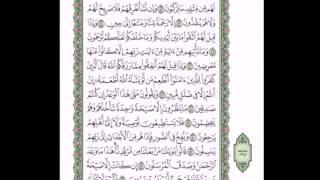 لَهُم مِّن مِّثْلِهِۦ مَا يَرْكَبُونَ وَإِن نَّشَأْ نُغْرِقْهُمْ فَلَا صَرِيخَ لَهُمْ
وَلَا هُمْ يُنقَذُونَ إِلَّا رَحْمَةً مِّنَّا وَمَتَٰعًا إِلَىٰ حِينٍ وَإِذَا
قِيلَ لَهُمُ ٱتَّقُوا۟ مَا بَيْنَ أَيْدِيكُمْ وَمَا خَلْفَكُمْ لَعَلَّكُمْ تُرْحَمُونَ
وَمَا تَأْتِيهِم مِّنْ ءَايَةٍ مِّنْ ءَايَٰتِ رَبِّهِمْ إِلَّا كَانُوا۟ عَنْهَا
مُعْرِضِينَ وَإِذَا قِيلَ لَهُمْ أَنفِقُوا۟ مِمَّا رَزَقَكُمُ ٱللَّهُ قَالَ ٱلَّذِينَ
كَفَرُوا۟ لِلَّذِينَ ءَامَنُوٓا۟ أَنُطْعِمُ مَن لَّوْ يَشَآءُ ٱللَّهُ أَطْعَمَهُۥٓ إِنْ
أَنتُمْ إِلَّا فِى ضَلَٰلٍ مُّبِينٍ وَيَقُولُونَ مَتَىٰ هَٰذَا ٱلْوَعْدُ إِن كُنتُمْ
صَٰدِقِينَ مَا يَنظُرُونَ إِلَّا صَيْحَةً وَٰحِدَةً تَأْخُذُهُمْ وَهُمْ
يَخِصِّمُونَ فَلَا يَسْتَطِيعُونَ تَوْصِيَةً وَلَآ إِلَىٰٓ أَهْلِهِمْ
يَرْجِعُونَ وَنُفِخَ فِى ٱلصُّورِ فَإِذَا هُم مِّنَ ٱلْأَجْدَاثِ إِلَىٰ رَبِّهِمْ
يَنسِلُونَ قَالُوا۟ يَٰوَيْلَنَا مَنۢ بَعَثَنَا مِن مَّرْقَدِنَا هَٰذَا مَا وَعَدَ
ٱلرَّحْمَٰنُ وَصَدَقَ ٱلْمُرْسَلُونَ إِن كَانَتْ إِلَّا صَيْحَةً